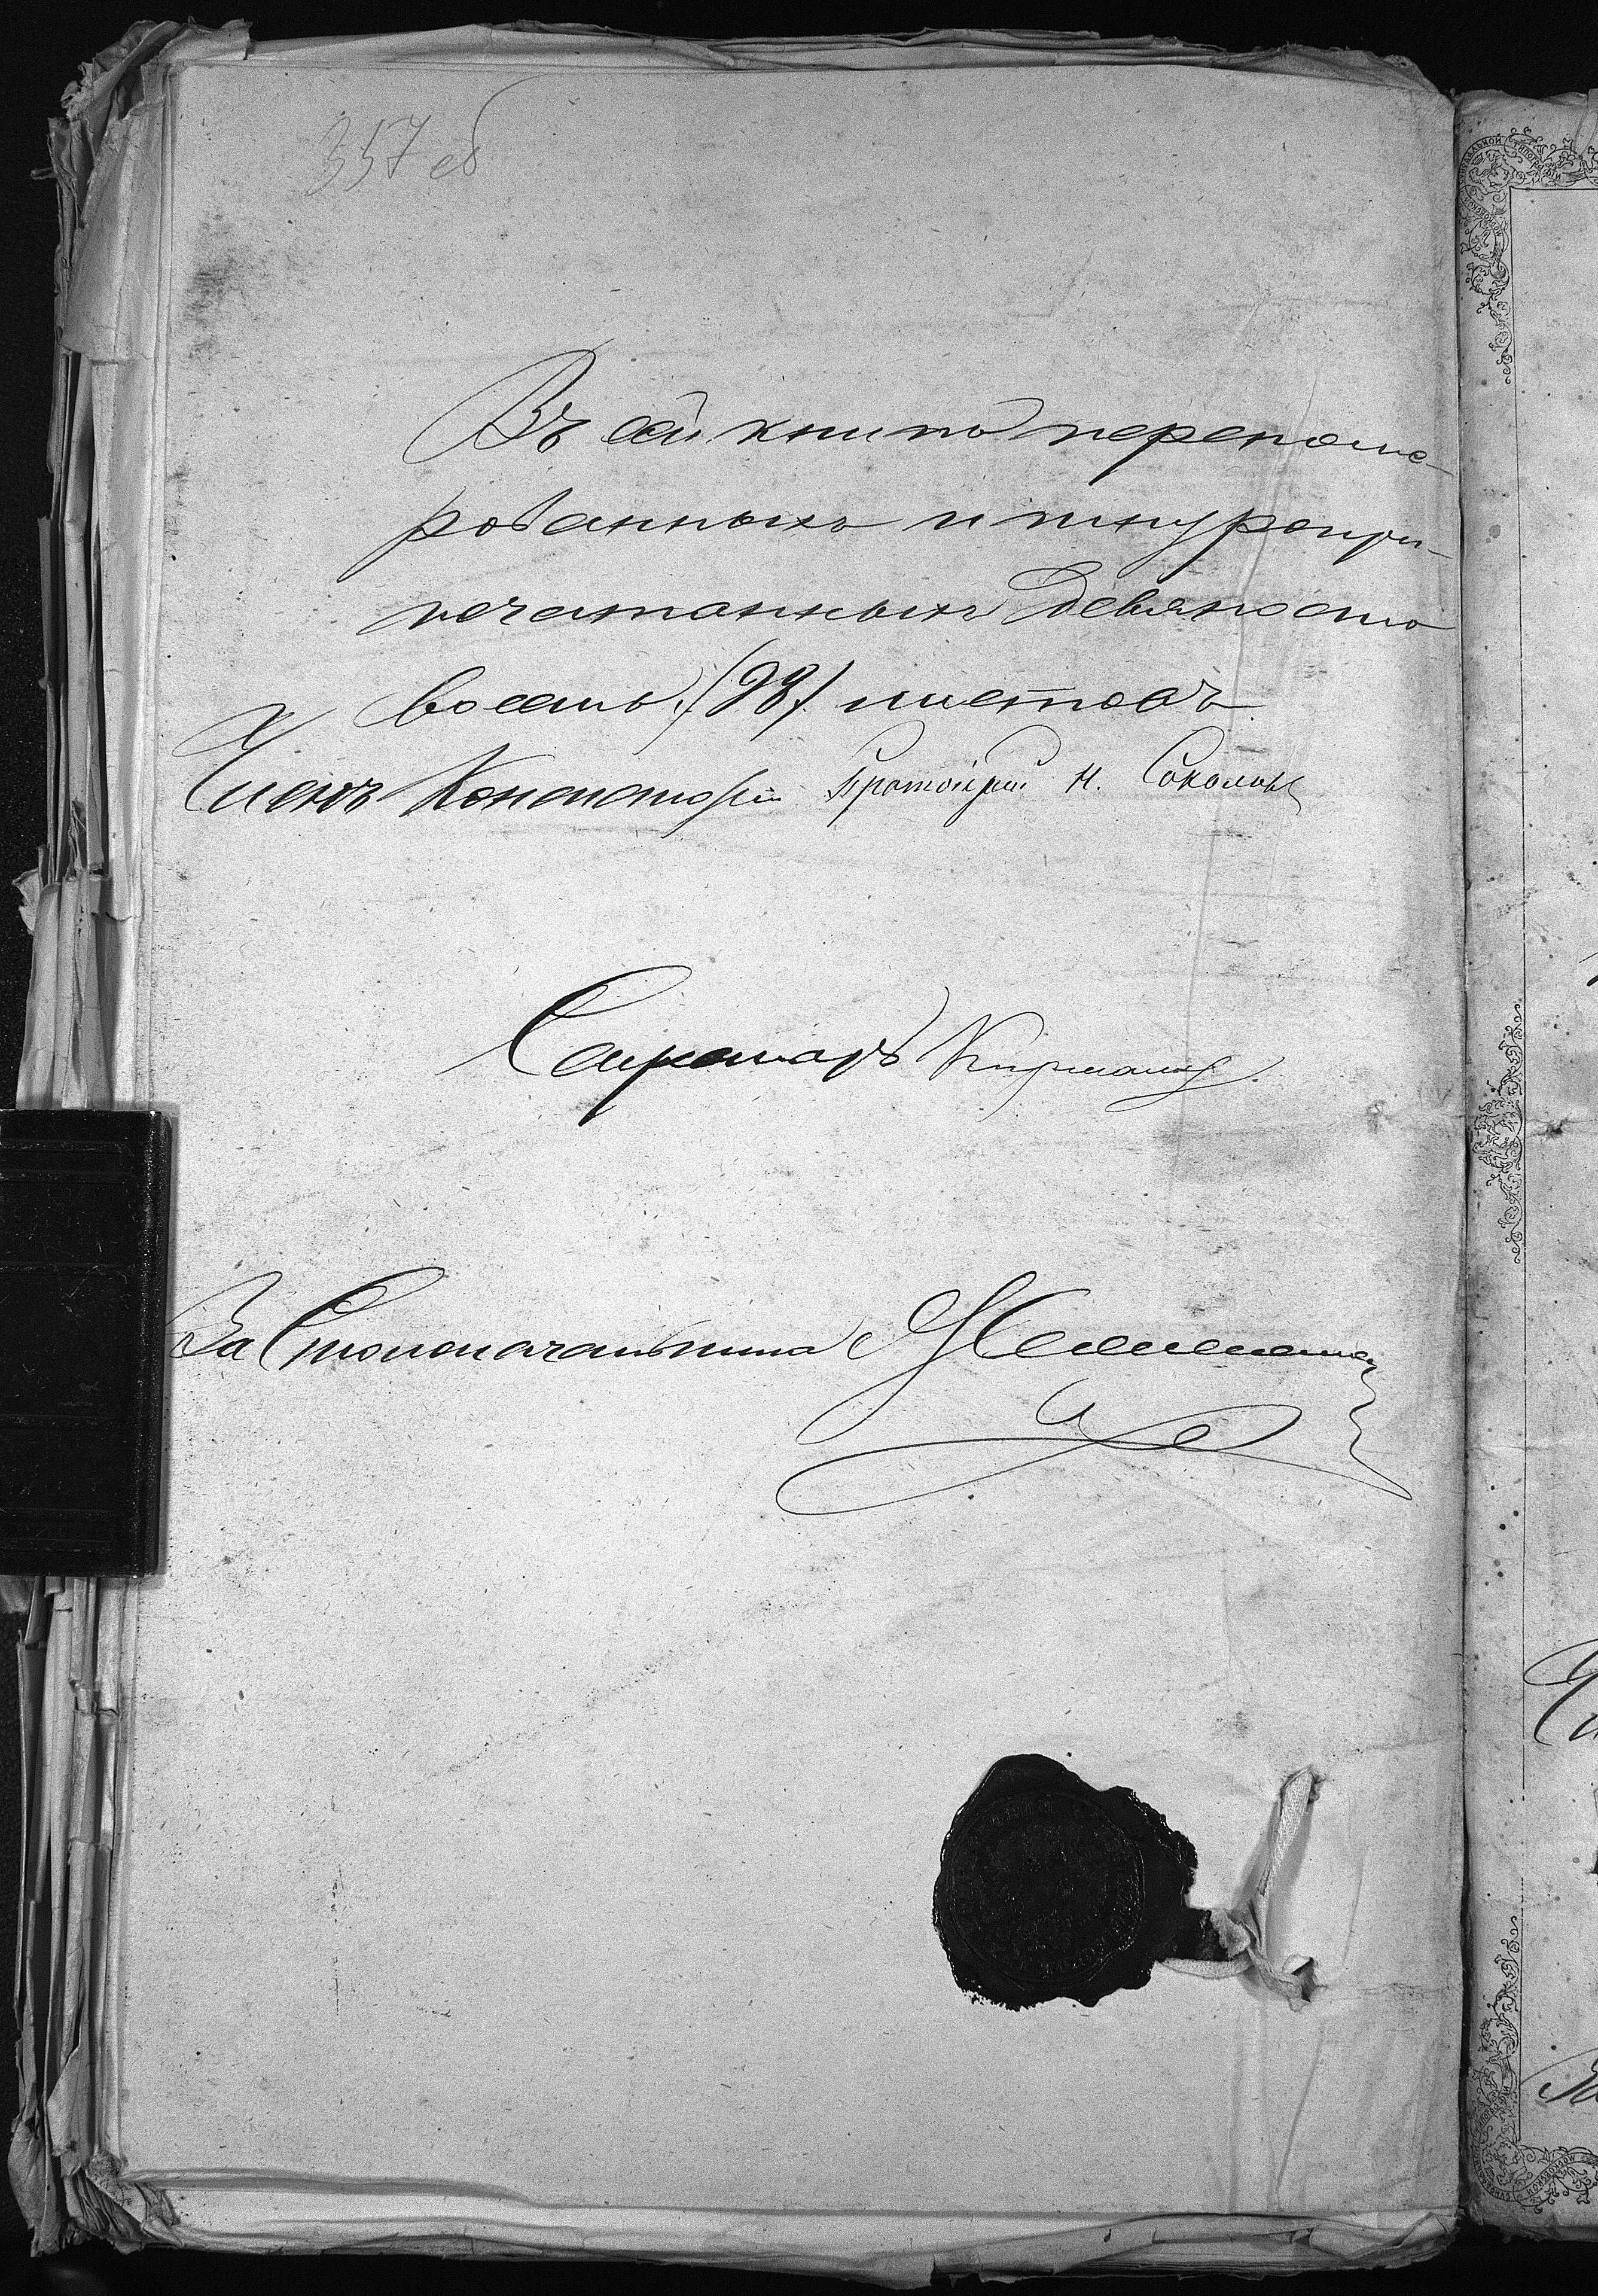 357 об
Въ сей книгѣ перенуме-
рованныхъ и шнуропри-
печатанныхъ девяносто
восемь /98/ листовъ.
Членъ Консисторіи Протоіерей Н. Соколовъ
Секретарь
За Столоначальника